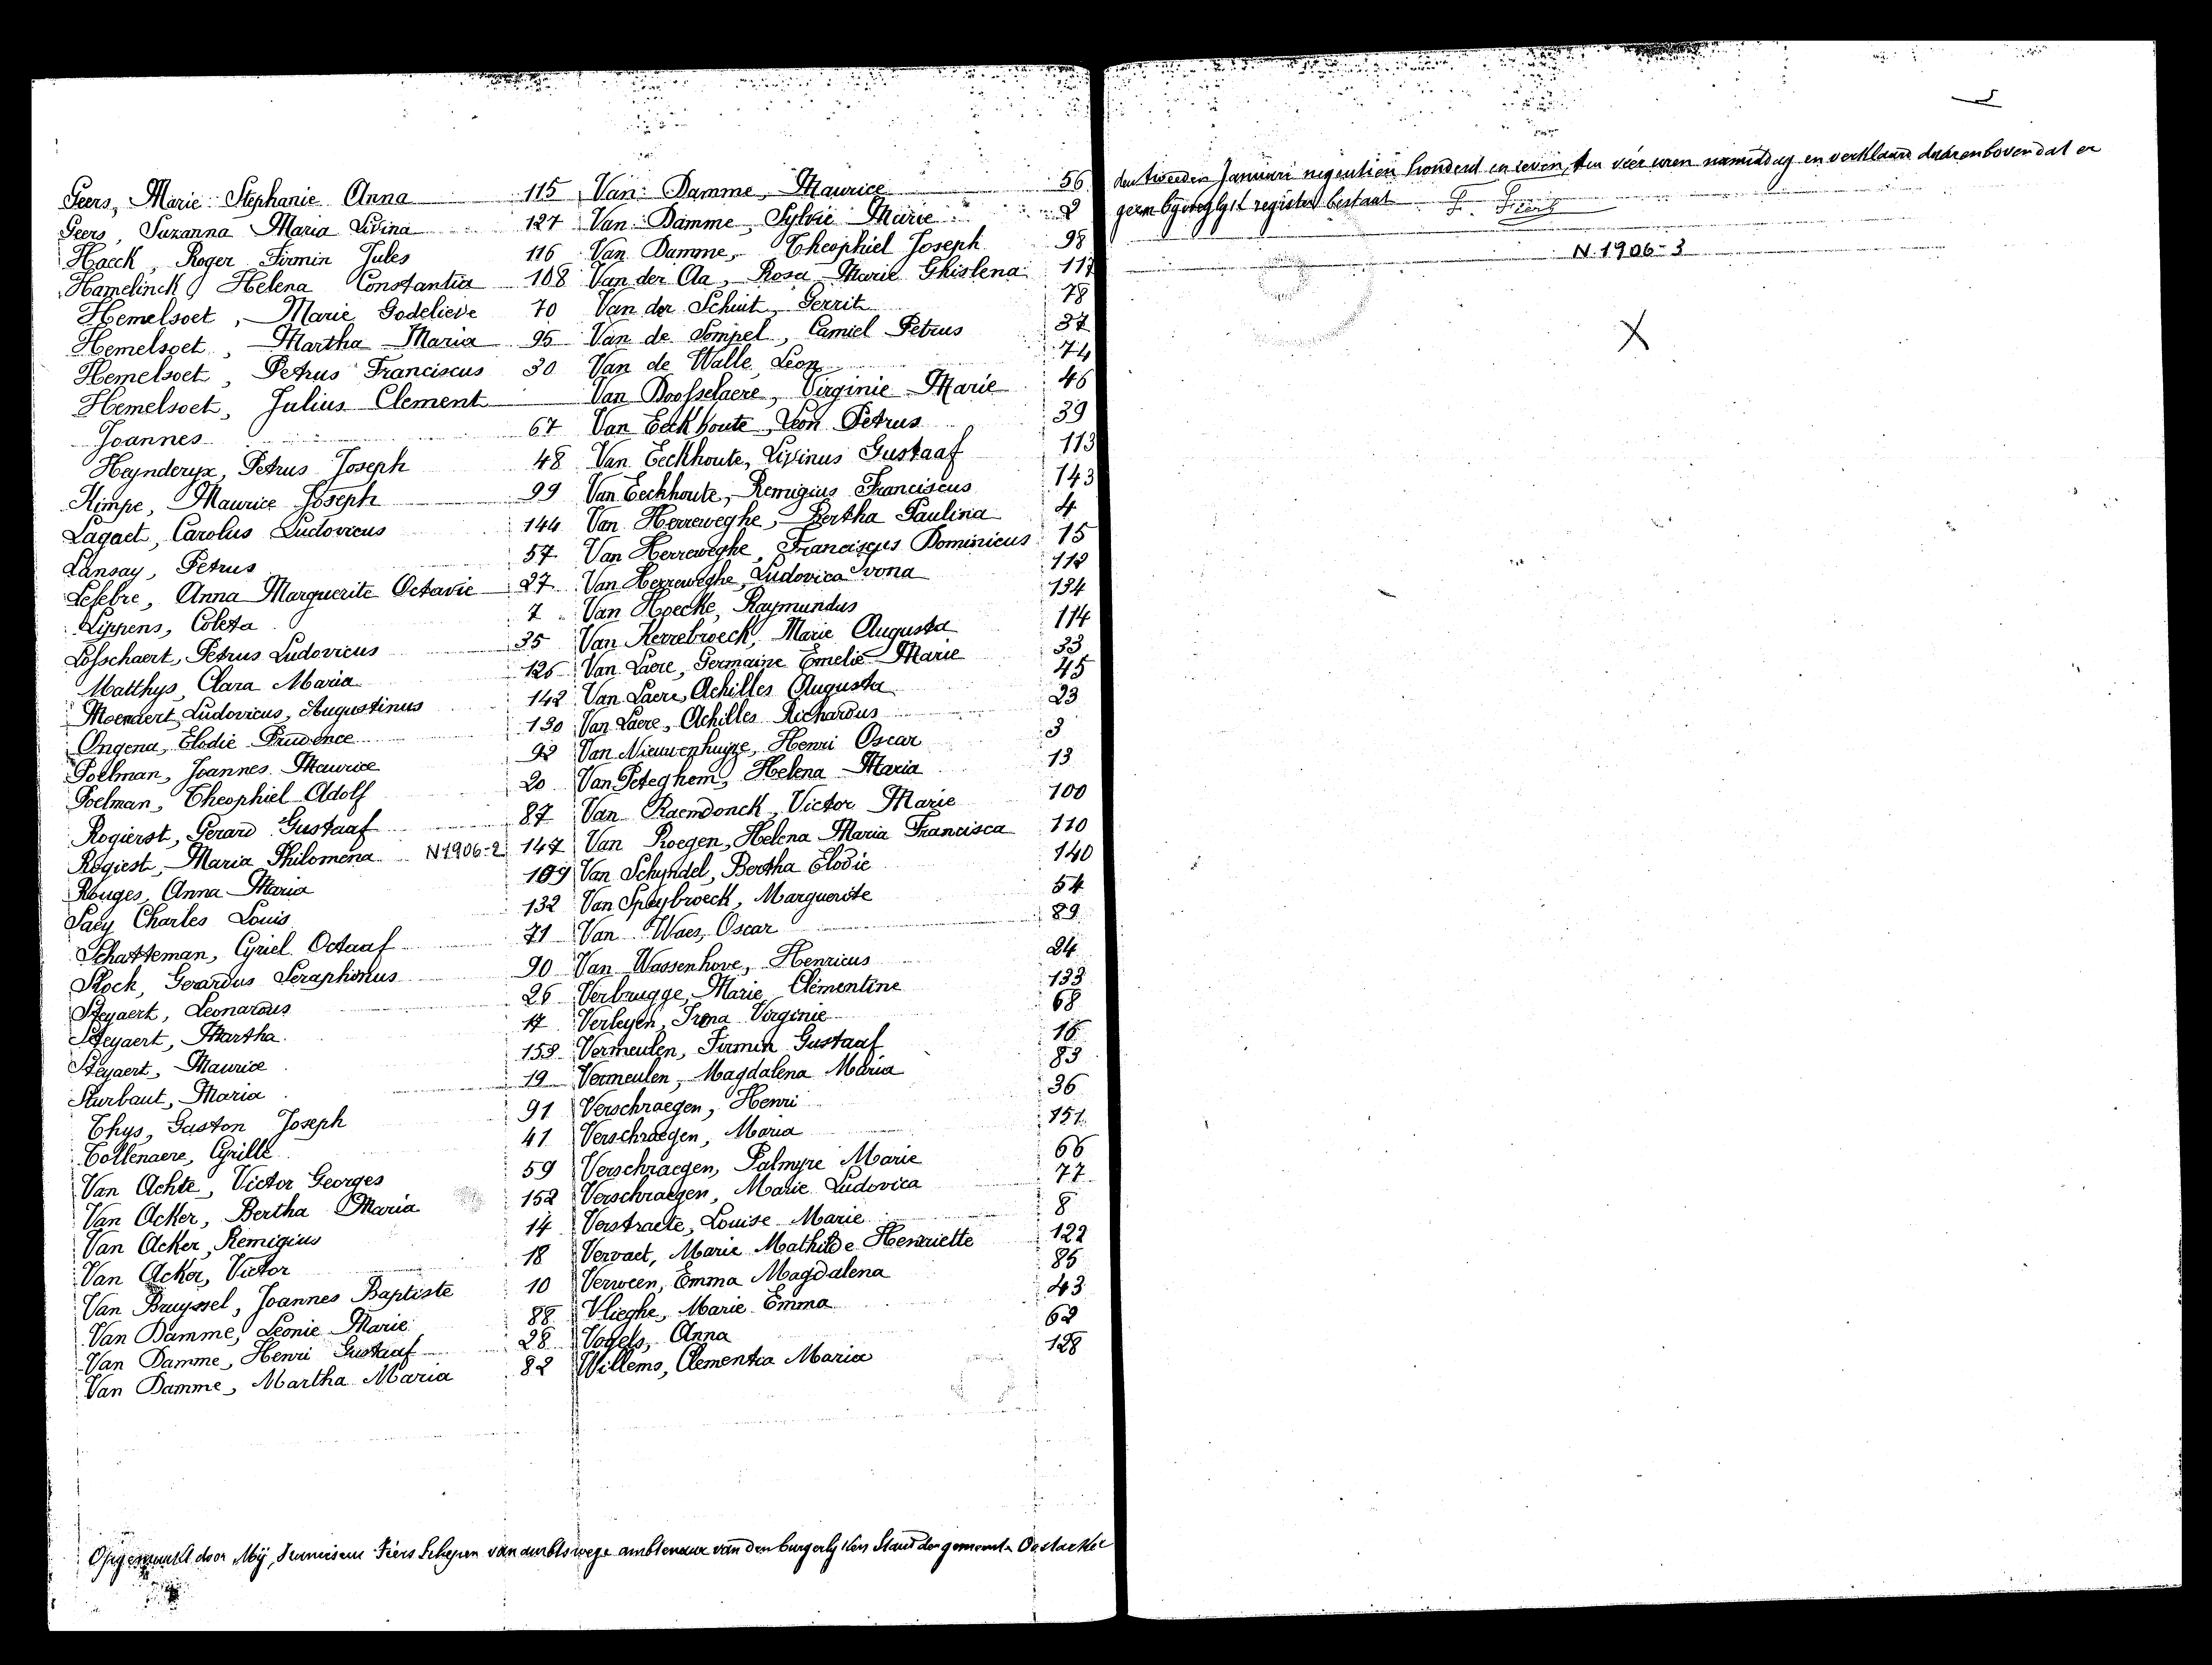 Geers, Marie Stephanie Anna 115
Geers, Suzanna Maria Livina 127
Haeck, Roger Firmin Jules 116
Hamelinck, Helena Constantia 108
Hemelsoet, Marie Godelieve 70
Hemelsoet, Martha Maria 95
Hemelsoet, Petrus Franciscus 30
Hemelsoet, Julius Clement
Joannes 67
Heynderyx, Petrus Joseph 48
Kimpe, Maurice Joseph 99
Lagaet, Carolus Ludovicus 144
Lansay, Petrus 57
Lefebre, Anna Marguerite Octavie 27
Lippens, Coleta 7
Losschaert, Petrus Ludovicus 35
Matthys, Clara Maria 126
Moenaert, Ludovicus, Augustinus 142
Ongena, Elodie Prudence 130
Poelman, Joannes Maurice 92
Poelman, Theophiel Adolf 20
Rogierst, Gerard Gustaaf 87
Rogiest, Maria Philomena N1906-2 147
Rouges, Anna Maria 109
Saey Charles Louis 132
Schatteman, Cyriel Octaaf 71
Stock, Gerardus Seraphinus 90
Steyaert, Leonardus 26
Steyaert, Martha 17
Steyaert, Maurice 153
Sturbaut, Maria 19
Thys, Gaston Joseph 91
Tollenaere, Cyrille 41
Van Achte, Victor Georges 59
Van Acker, Bertha Maria 152
Van Acker, Remigius 14
Van Acker, Victor 18
Van Bruyssel, Joannes Baptiste 10
Van Damme, Leonie Marie 88
Van Damme, Henri Gustaaf 28
Van Damme, Martha Maria 82
Van Damme, Maurice 56
Van Damme, Sylvie Marie 2
Van Damme, Theophiel Joseph 98
Van der Aa, Rosa Marie Ghislena 117
Van der Schuit, Gerrit 78
Van de Sompel, Camiel Petrus 37
Van de Walle, Leon 74
Van Doosselaere, Virginie Marie 46
Van Eeckhoute, Leon Petrus 39
Van Eeckhoute, Livinus Gustaaf 113
Van Eeckhoute, Remigius Franciscus 143
Van Herreweghe, Bertha Paulina 4
Van Herreweghe, Franciscus Dominicus 15
Van Herreweghe, Ludovica Ivona 112
Van Hoecke, Raymundus 134
Van Kerrebroeck, Marie Augusta 114
Van Laere, Germaine Emelie Marie 33
Van Laere, Achilles Augusta 45
Van Laere, Achilles Richardus 23
Van Nieuwenhuyze, Henri Oscar 3
Van Peteghem, Helena Maria 13
Van Raemdonck, Victor Marie 100
Van Roegen, Helena Maria Francisca 110
Van Schyndel, Bertha Elodie 140
Van Speybroeck, Marguerite 54
Van Waes, Oscar 89
Van Wassenhove, Henricus 24
Verbrugge, Marie Clementine 133
Verleyen, Irma Virginie 68
Vermeulen, Firmin Gustaaf 16
Vermeulen, Magdalena Maria 83
Verschraegen, Henri 36
Verschraegen, Maria 151
Verschraegen, Palmyre Marie 66
Verschraegen, Marie Ludovica 77
Verstraete, Louise Marie 8
Vervaet, Marie Mathilde Henriette 122
Verween, Emma Magdalena 85
Vlieghe, Marie Emma 43
Vogels, Anna 62
Willems, Clementia Maria 128
Opgemaakt door Mij, Franciscus Fiers Schepen van ambtswege ambtenaar van den burgerlyken Stand der gemeente Oostacker
den tweeden Januari negentien honderd en zeven, ten vier uren namiddag en verklaard daarenboven dat er
geen bijvoeglijk register bestaat F. Fiers
N.1906-3
X